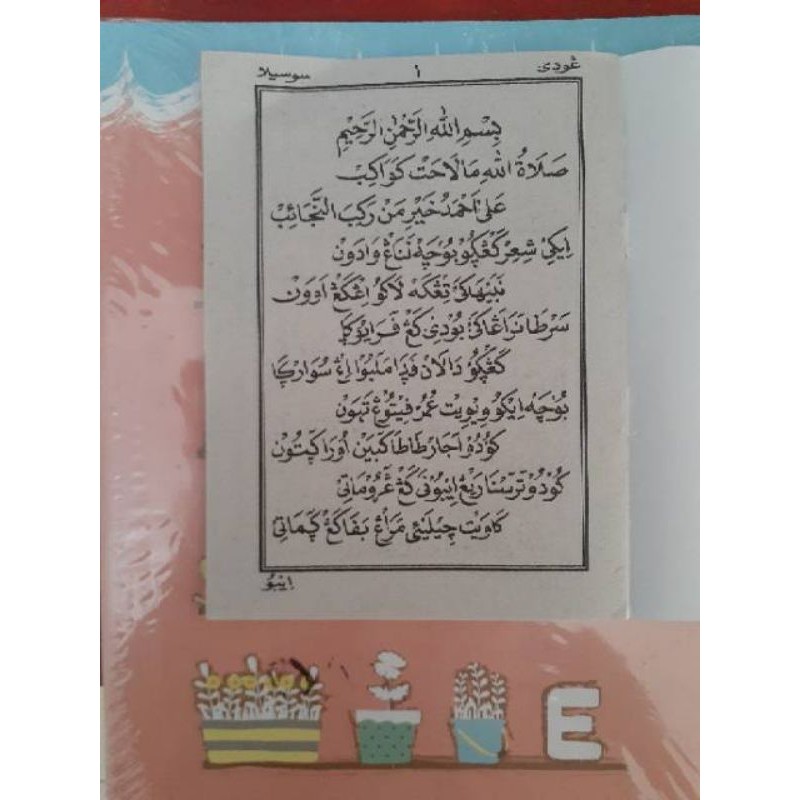 ڠودي ١ سوسيلا
بِسْمِ اللّٰهِ الرَّحْمٰنِ الرَّحِيْمِ
صَلَاةُ اللّٰهِ مَالَاحَتْ كَوَاكِبْ
عَلٰى اَحْمَدْ خَيْرِ مَنْ رَكِبَ النَّجَائِبْ
اِيكِيْ شِعِرْ كَڠْڮَوْ بَوْچَهْ لَنَاڠْ وَادَوْنْ
نَبِيْهَاكَيْ تِڠْكَهْ لَاكُوْ اِڠْكَڠْ اَوَوْنْ
سَرْطَا نَرَاڠَاكَيْ بُوْدِيْ كَڠْ فَرَايَوْڮَا
كَڠْڮَوْ دَالَانْ فَدَا مَلَبُوْ اِڠْ سُوَارْڮَا
بَوْچَهْ اِيْكُوْ وِيْوِيْتْ عُمُرْ فِيْتُوْڠْ تَهَوْنْ
كُوْدُوْ اَجَارْ طَاطَا كَبَيْنْ اَوْرَا ڮَتُوْنْ
كُوْدُوْ تْرَيْسْنَا رِيْڠْ اِيْبُوْنَيْ كَڠْ ڠْرُوْمَاتِيْ
كَاوِيْتْ چِيْلِيْئْ مَرَاڠْ بَفَا كَڠْ ڮَمَاتِيْ
اِيْبُوْ
E